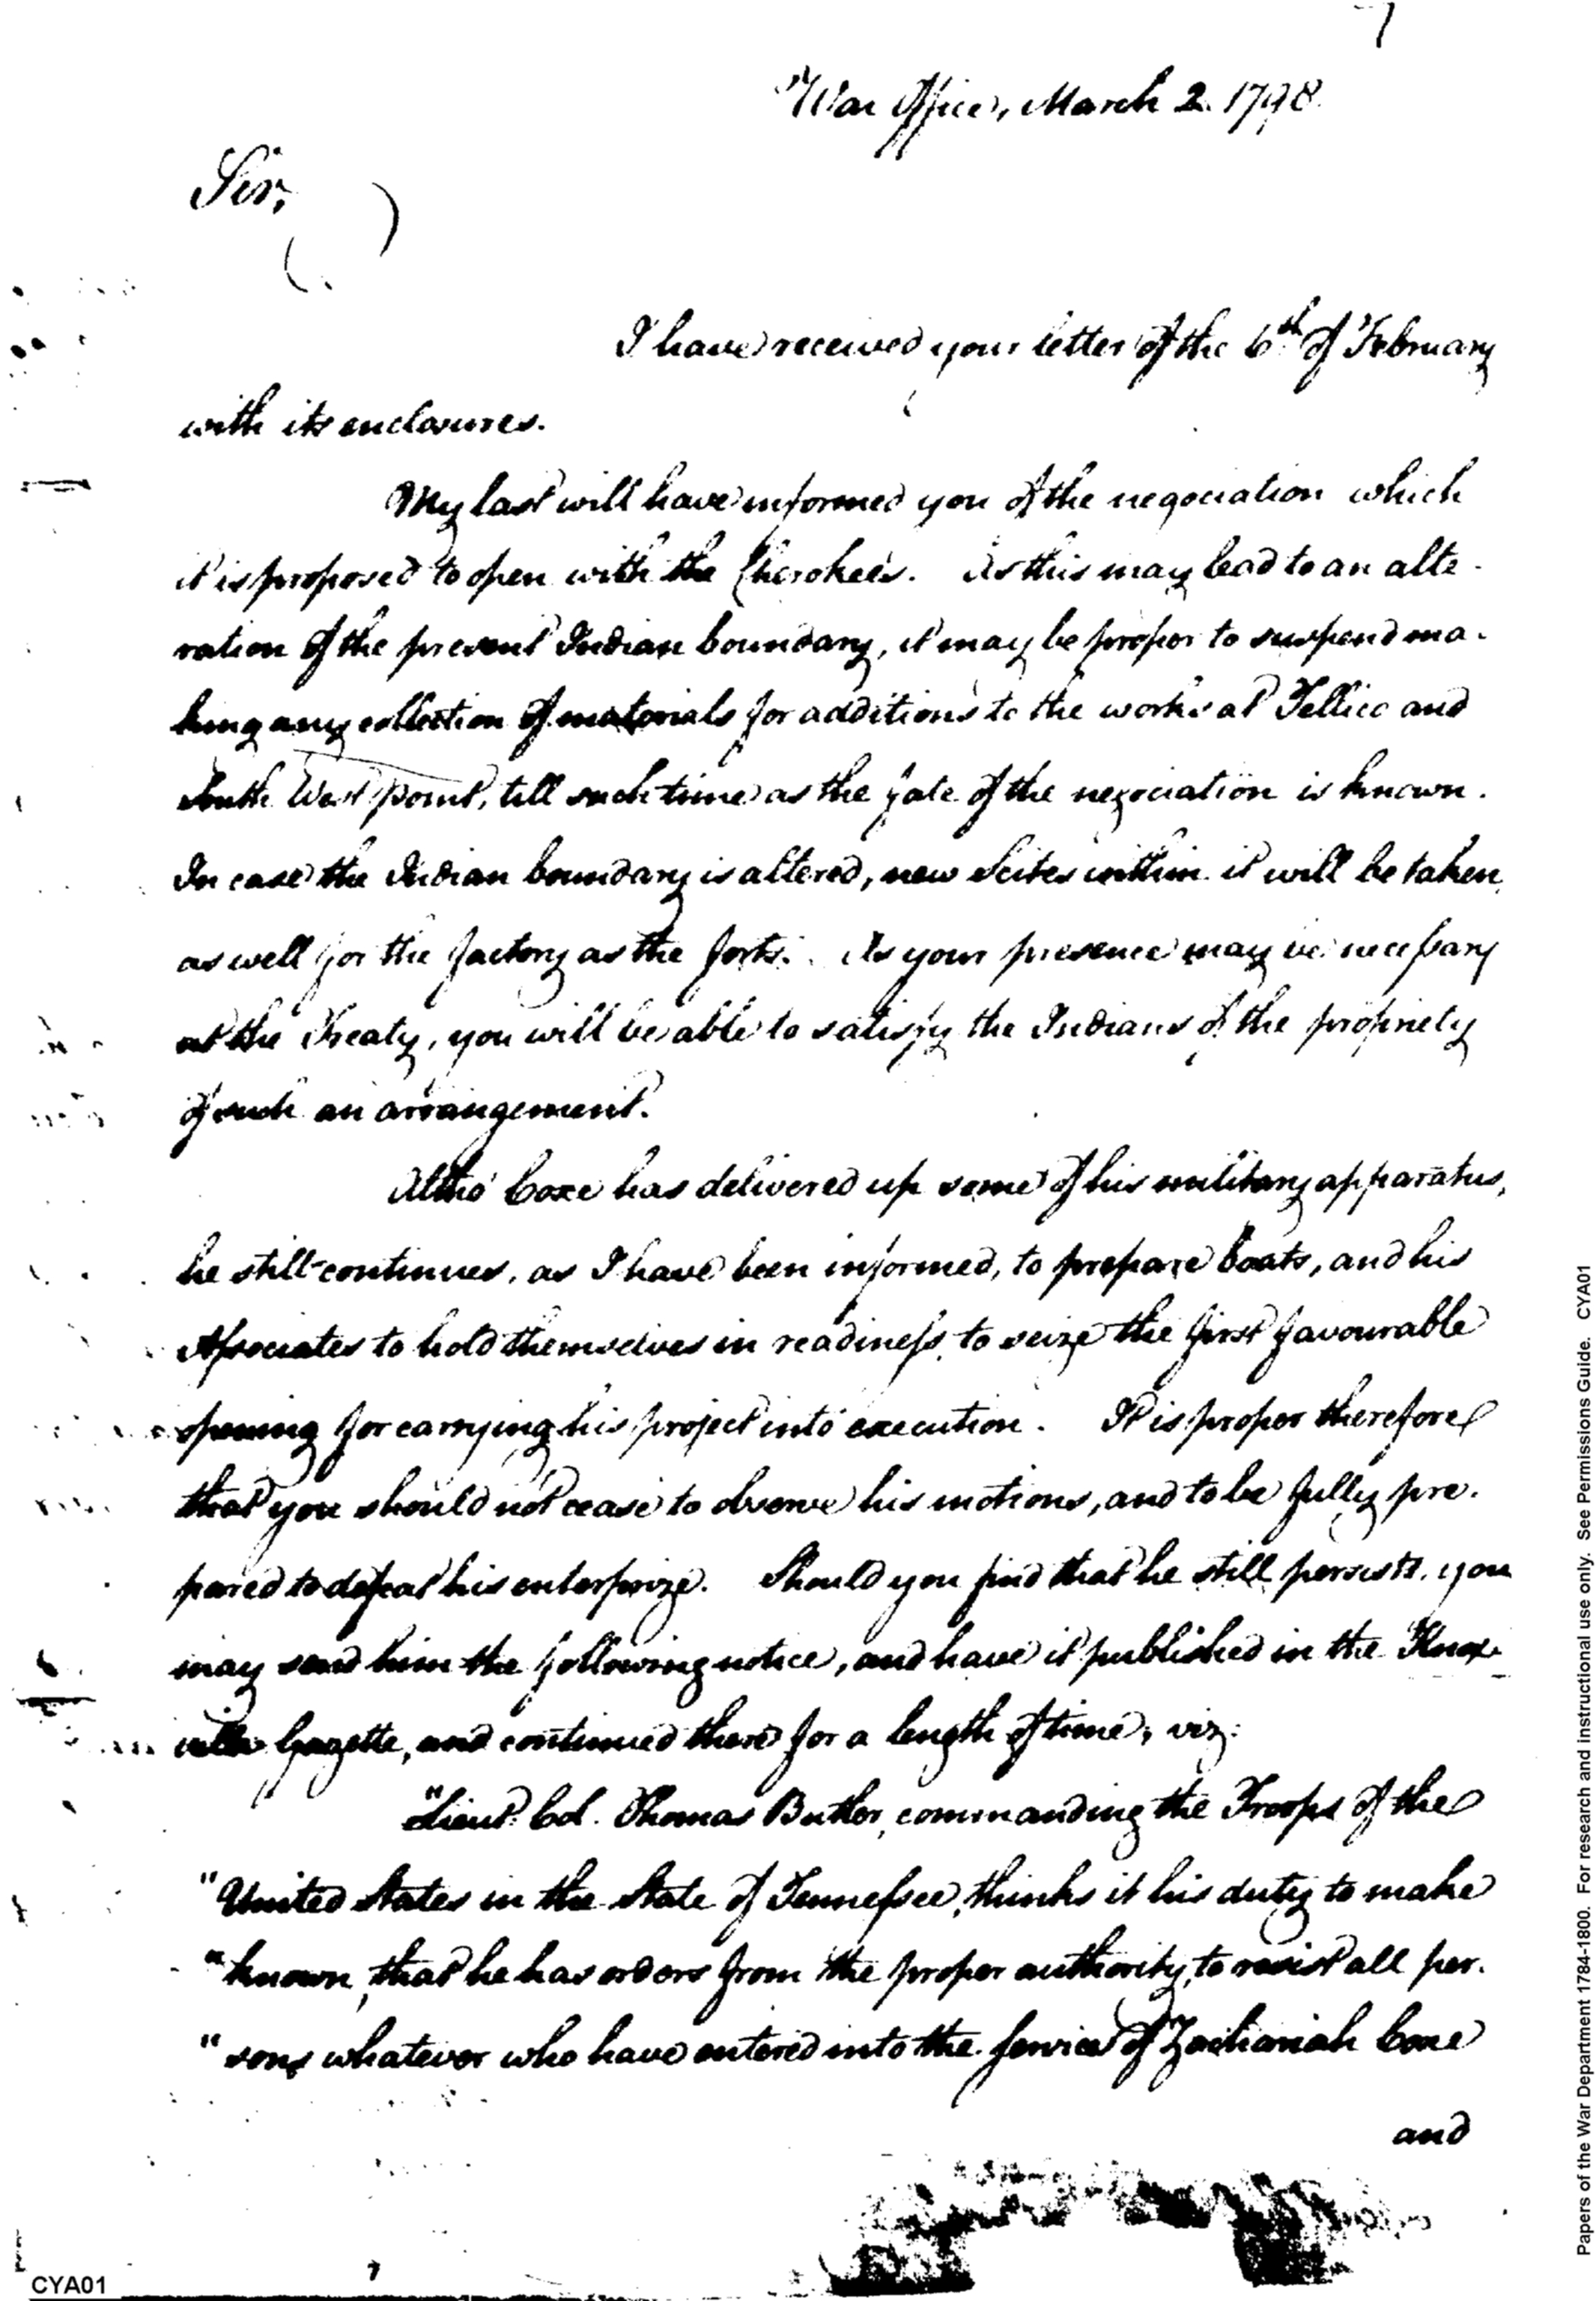 7
War Office, March 2. 1798.
Sir,
I have received your letter of the 6th of February
with its enclosures.
My last will have informed you of the negociation which
it is proposed to open with the Cherokees. As this may lead to an alte-
ration of the present Indian boundary, it may be proper to suspend ma-
king any collection of materials for additions to the works at Tellico and
South West point, till such time as the fate of the negociation is known.
In case the Indian boundary is altered, new Scites within it will be taken,
as well for the factory as the forts. As your presence may be necessary
at the Treaty, you will be able to satisfy the Indians of the propriety
of such an arrangement.
Altho' Coxe has delivered up some of his military apparatus,
he still continues, as I have been informed, to prepare boats, and his
Associates to hold themselves in readiness, to seize the first favourable
opening for carrying his project into execution. It is proper therefore
that you should not cease to observe his motions, and to be fully pre-
pared to defeat his enterprize. Should you find that he still persists, you
may send him the following notice, and have it published in the Knox-
ville Gazette, and continued there for a length of time, viz:
"Lieut. Col. Thomas Butler, commanding the Troops of the
"United States in the State of Tennessee, thinks it his duty to make
"known, that he has orders from the proper authority, to resist all per-
"sons whatever who have entered into the service of Zachariah Coxe
and
7
CYA01
Papers of the War Department 1784-1800. For research and instructional use only. See Permissions Guide. CYA01